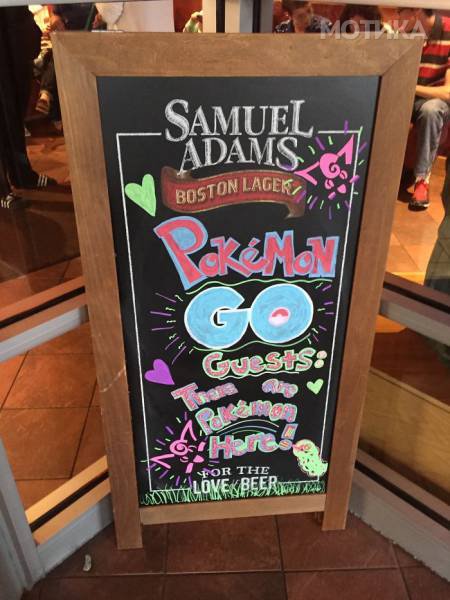 МОТИКА
SAMUEL
ADAMS
BOSTON LAGER
POKÉMON
GO
GUESTS:
There are
Pokémon
Here!
FOR THE
LOVE OF BEER